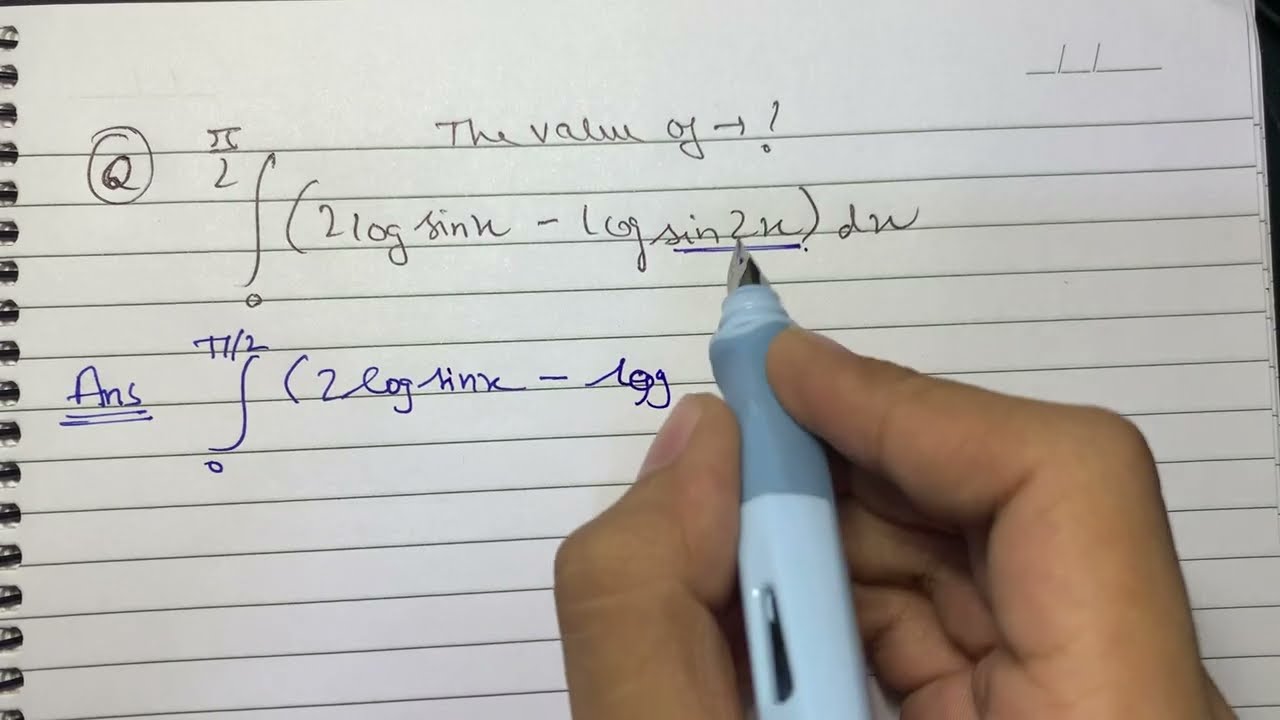 __/__/____
The value of → ?
Q π/2 ∫ 0 (2 log sinx - log sin2x) dx
Ans π/2 ∫ 0 (2 log sinx - log